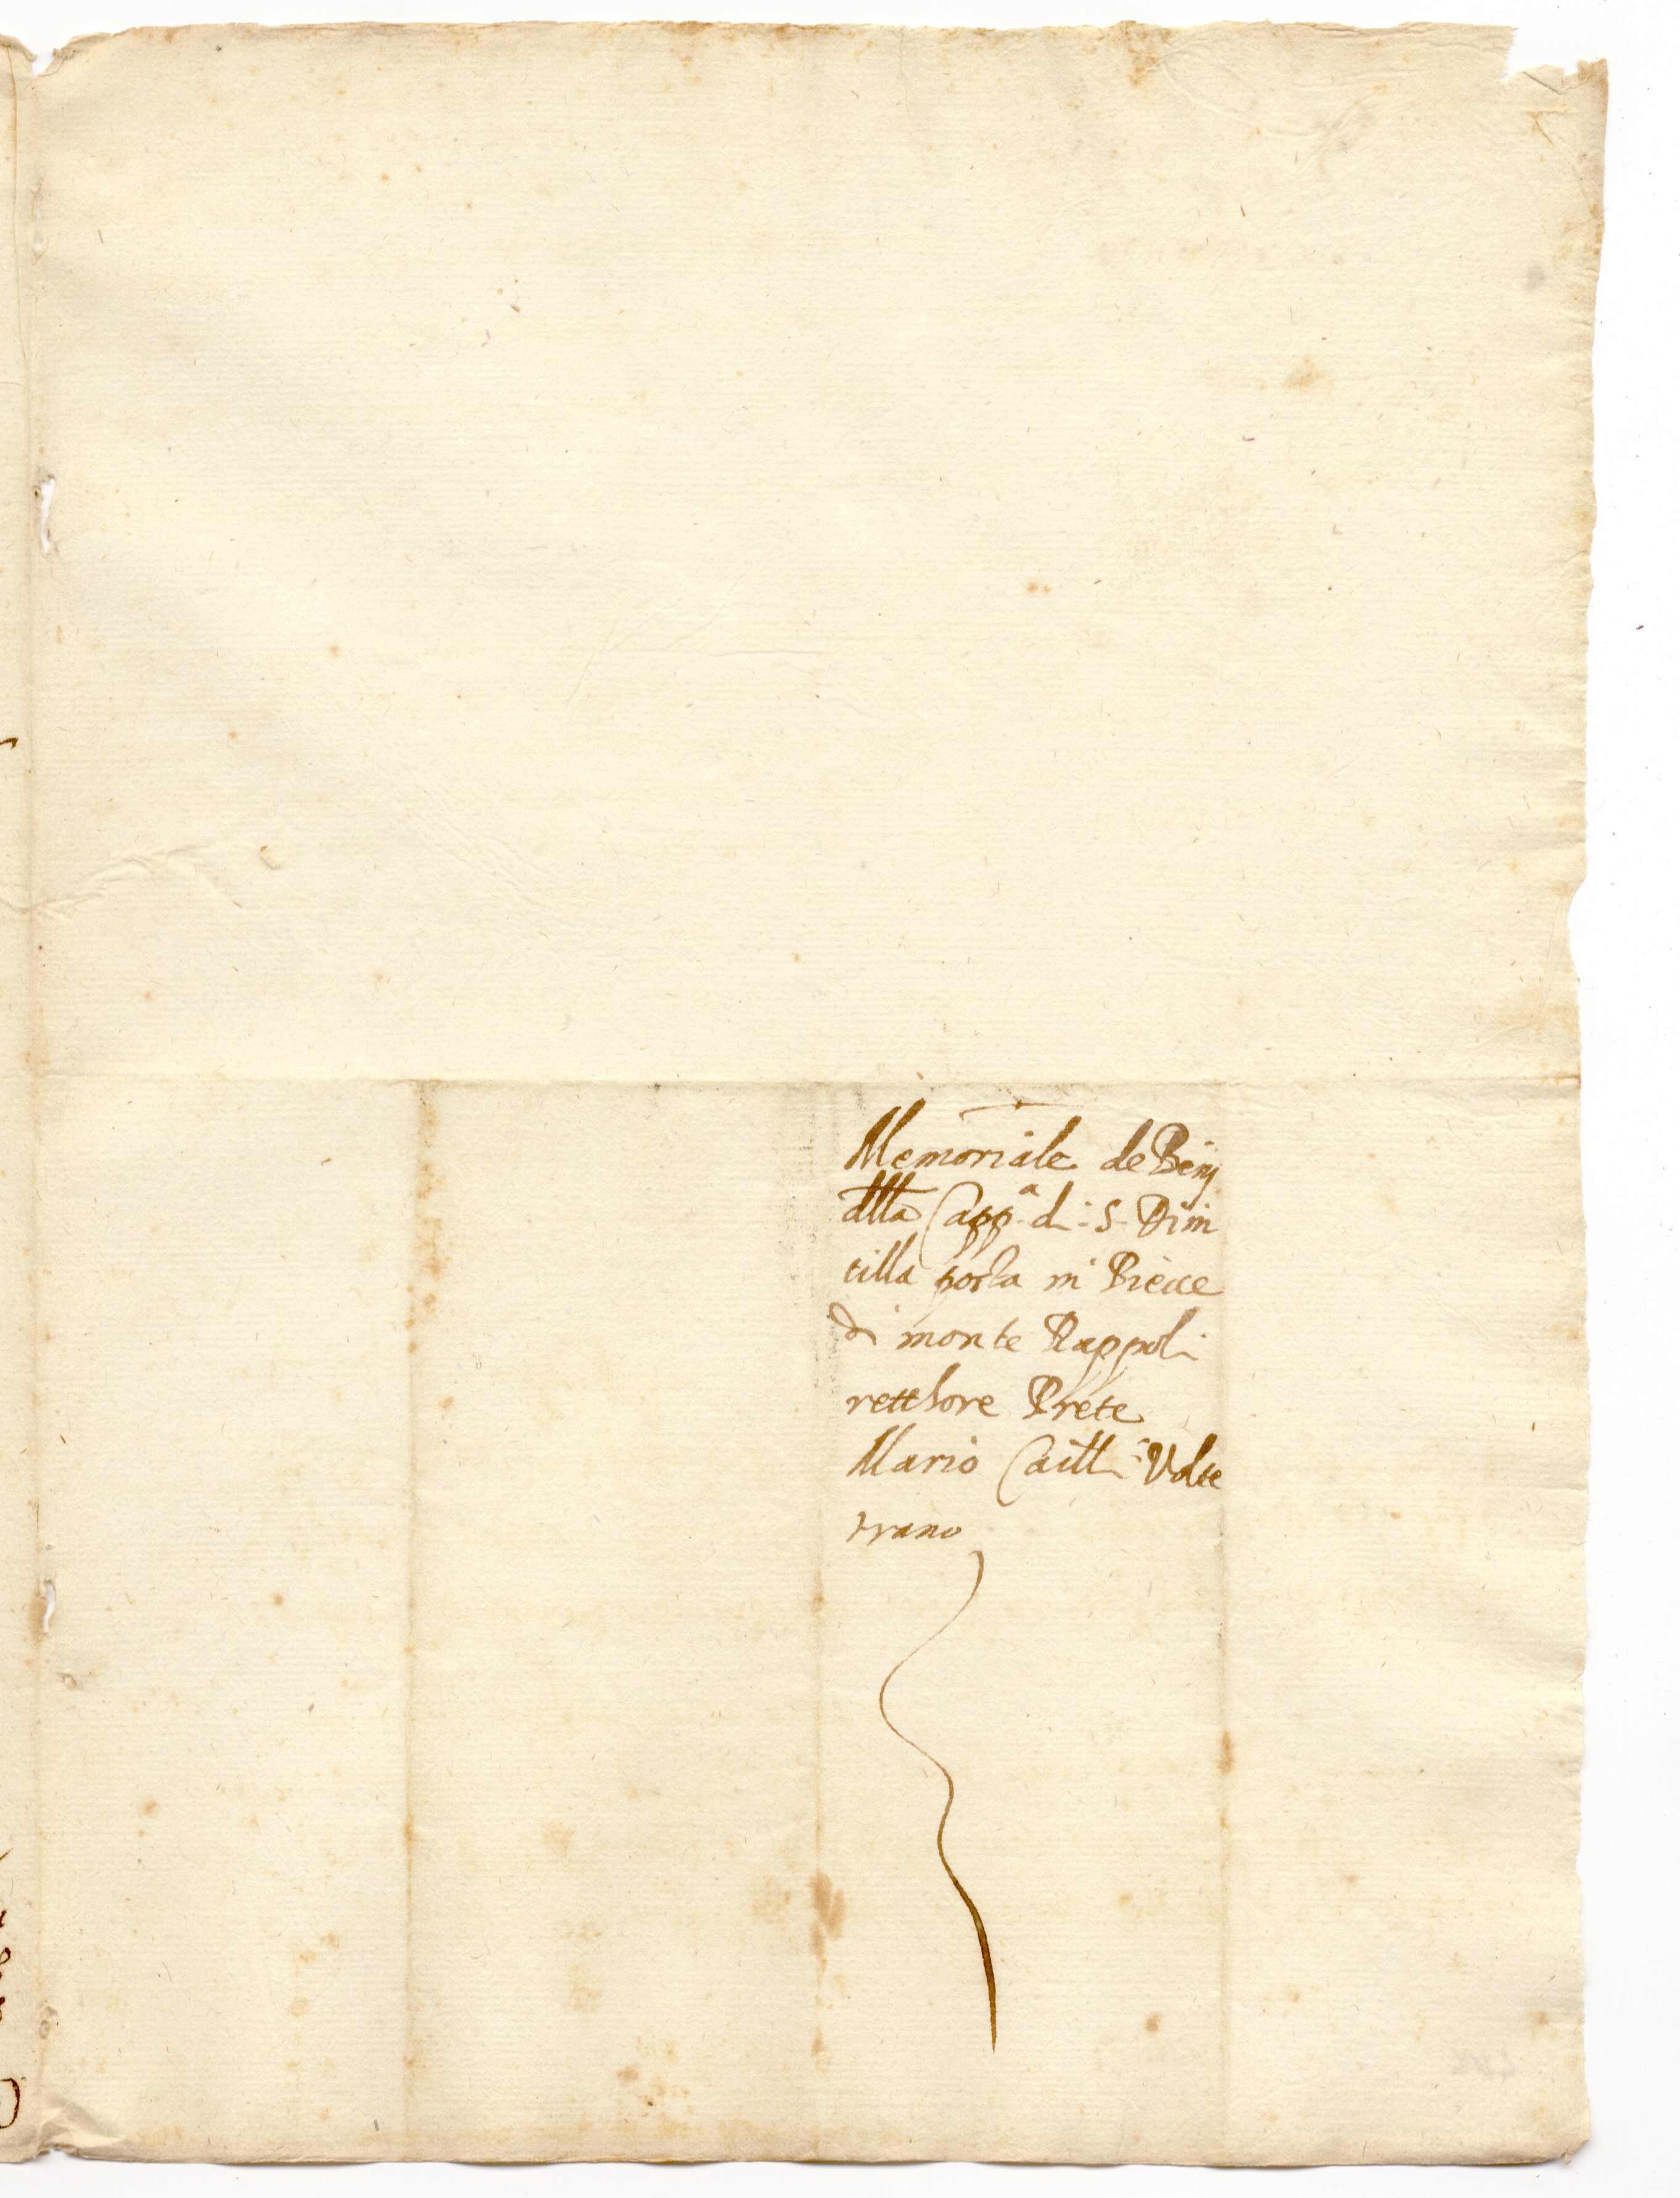 Memoriale de Benj
della Capp.a di S. Dom
cilla posta in Pieve
di monte Rappoli
retthore Prete
Mario Volte
rrano